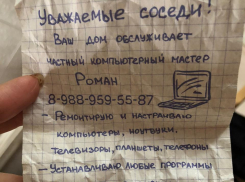 Уважаемые соседи!
Ваш дом обслуживает
частный компьютерный мастер
Роман
8-988-959-55-87
- Ремонтирую и настраиваю
компьютеры, ноутбуки,
телевизоры, планшеты, телефоны
- Устанавливаю любые программы